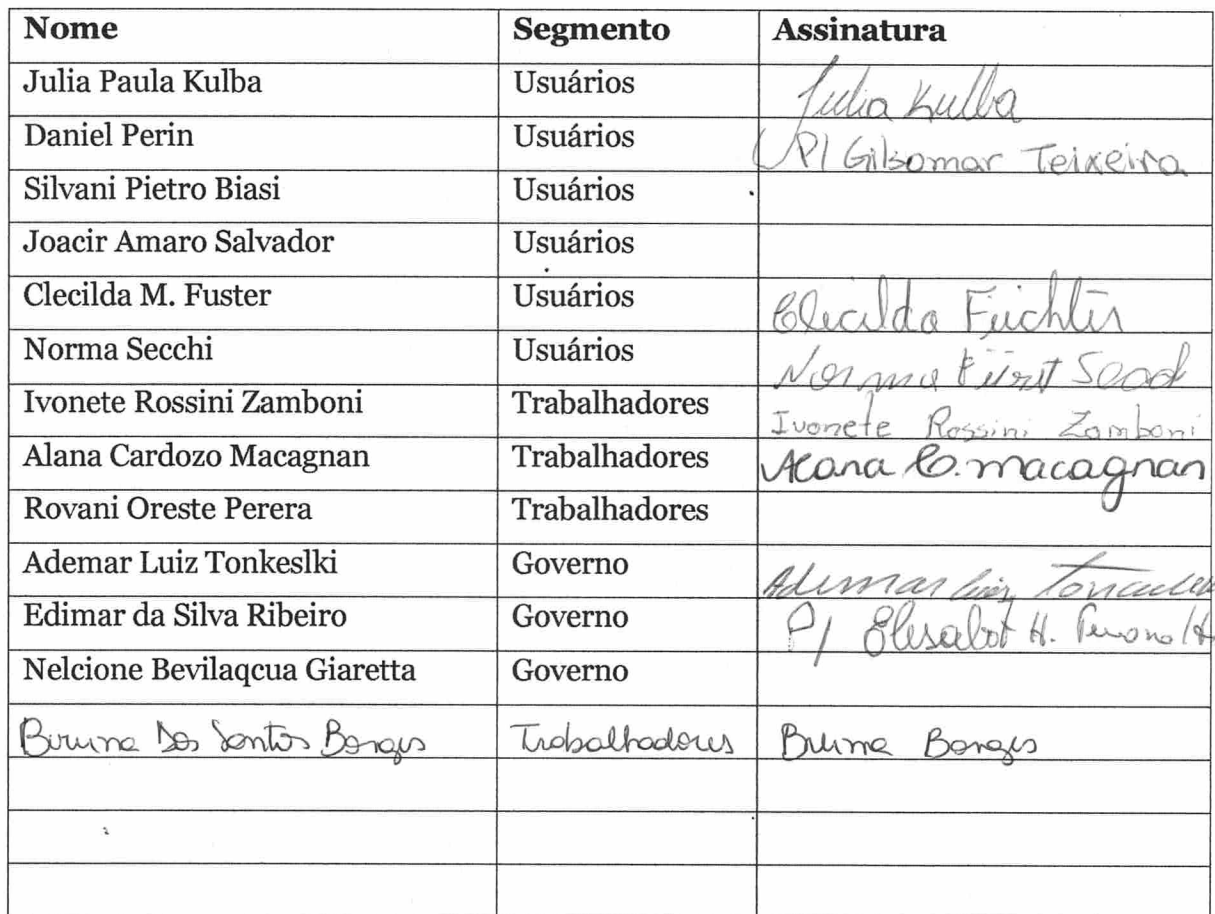 Nome Segmento Assinatura
Julia Paula Kulba Usuários Julia Kulba
Daniel Perin Usuários P/ Gilsomar Teixeira
Silvani Pietro Biasi Usuários
Joacir Amaro Salvador Usuários
Clecilda M. Fuster Usuários Clecilda Feichter
Norma Secchi Usuários Norma Fürst
Ivonete Rossini Zamboni Trabalhadores Ivonete Rossini Zamboni
Alana Cardozo Macagnan Trabalhadores Alana C. Macagnan
Rovani Oreste Perera Trabalhadores
Ademar Luiz Tonkeslki Governo Ademar Luiz
Edimar da Silva Ribeiro Governo P/ H.
Nelcione Bevilaqcua Giaretta Governo
Bruna Dos Santos Borges Trabalhadores Bruna Borges